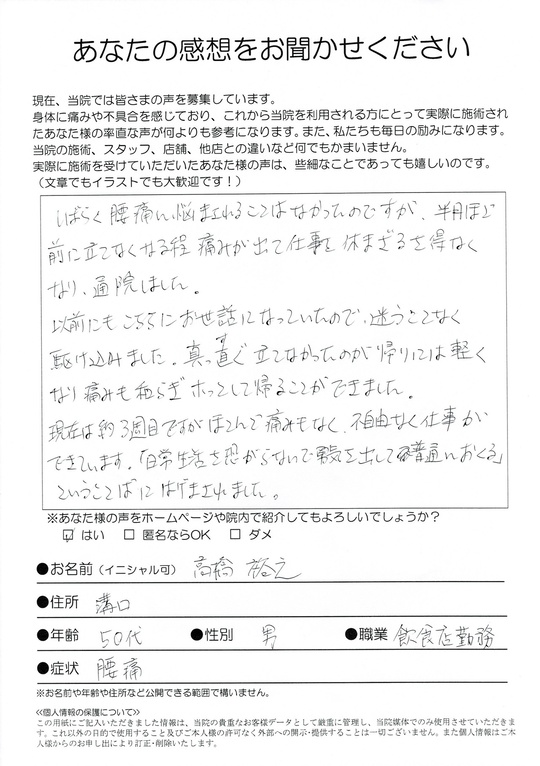 あなたの感想をお聞かせください
現在、当院では皆さまの声を募集しています。
身体に痛みや不具合を感じており、これから当院を利用される方にとって実際に施術され
たあなた様の率直な声が何よりも参考になります。また、私たちも毎日の励みになります。
当院の施術、スタッフ、店舗、他店との違いなど何でもかまいません。
実際に施術を受けていただいたあなた様の声は、些細なことであっても嬉しいのです。
(文章でもイラストでも大歓迎です!)
しばらく腰痛に悩まされることはなかったのですが、半月ほど
前に立てなくなる程痛みが出て仕事を休まざるを得なく
なり、通院しました。
以前にもこちらにお世話になっていたので、迷うことなく
駆け込みました。真っ直ぐ立てなかったのが帰りには軽く
なり痛みも和らぎホッとして帰ることができました。
現在は約3週目ですがほとんど痛みもなく、不自由なく仕事が
できています。「日常生活を恐がらないで勇気を出して普通におくる」
ということばにはげまされました。
※あなた様の声をホームページや院内で紹介してもよろしいでしょうか?
☑ はい □ 匿名ならOK □ ダメ
●お名前(イニシャル可) 高橋 裕之
●住所 溝口
●年齢 50代 ●性別 男 ●職業 飲食店勤務
●症状 腰痛
※お名前や年齢や住所など公開できる範囲で構いません。
≪個人情報の保護について≫
この用紙にご記入いただきました情報は、当院の貴重なお客様データとして厳重に管理し、当院媒体でのみ使用させていただきま
す。これ以外の目的で使用すること及びご本人様の許可なく外部への開示・提供することは一切ございません。また個人情報はご本
人様からのお申し出により訂正・削除いたします。